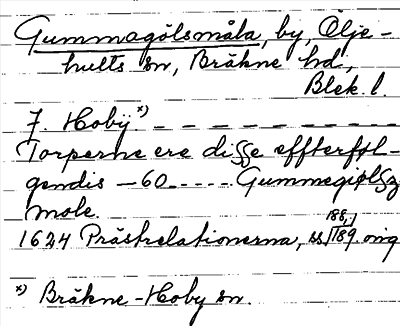 Gummagölsmåla, by, Ölje-
hults sn, Bräkne hd,
Blek. l.
J. Hobÿ x) — — — — — — — — —
Torperne ere diſſe effterføl-
gendis — 60 - - - - - Gummegiølſz
mole.
1624 Prästrelationerna, ss. 188, 189. orig
x) Bräkne-Hoby sn.